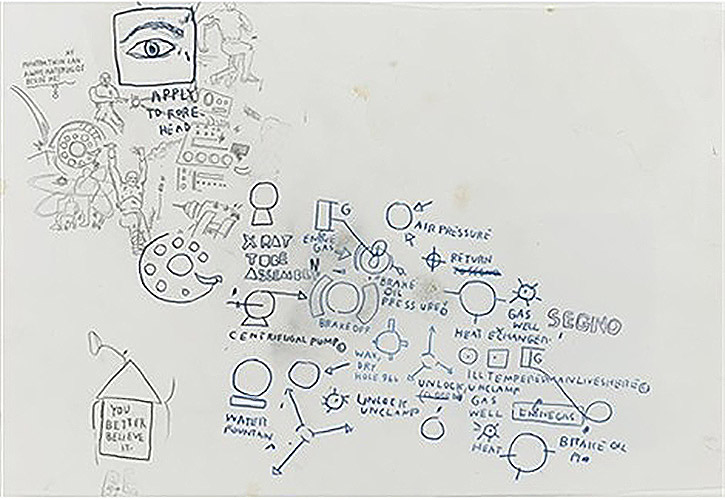 APPLY
TO FORE-
HEAD
G
AIR PRESSURE
X RAY
TUBE
ASSEMBLY
N
ENGINE
GAS
RETURN
BRAKE
OIL
PRESSURE
BRAKE OFF
GAS
WELL
SEGNO
HEAT EXHANGER
CENTRIFUGAL PUMP
WAX,
DRY
HOLE 96
G
ILL TEMPERED MAN LIVES HERE
UNLOCK, UNCLAMP
GAS
WELL
UNLOCK
UNCLAMP
ENGINE GAS
YOU
BETTER
BELIEVE
IT.
WATER
FOUNTAIN
HEAT
BRAKE OIL